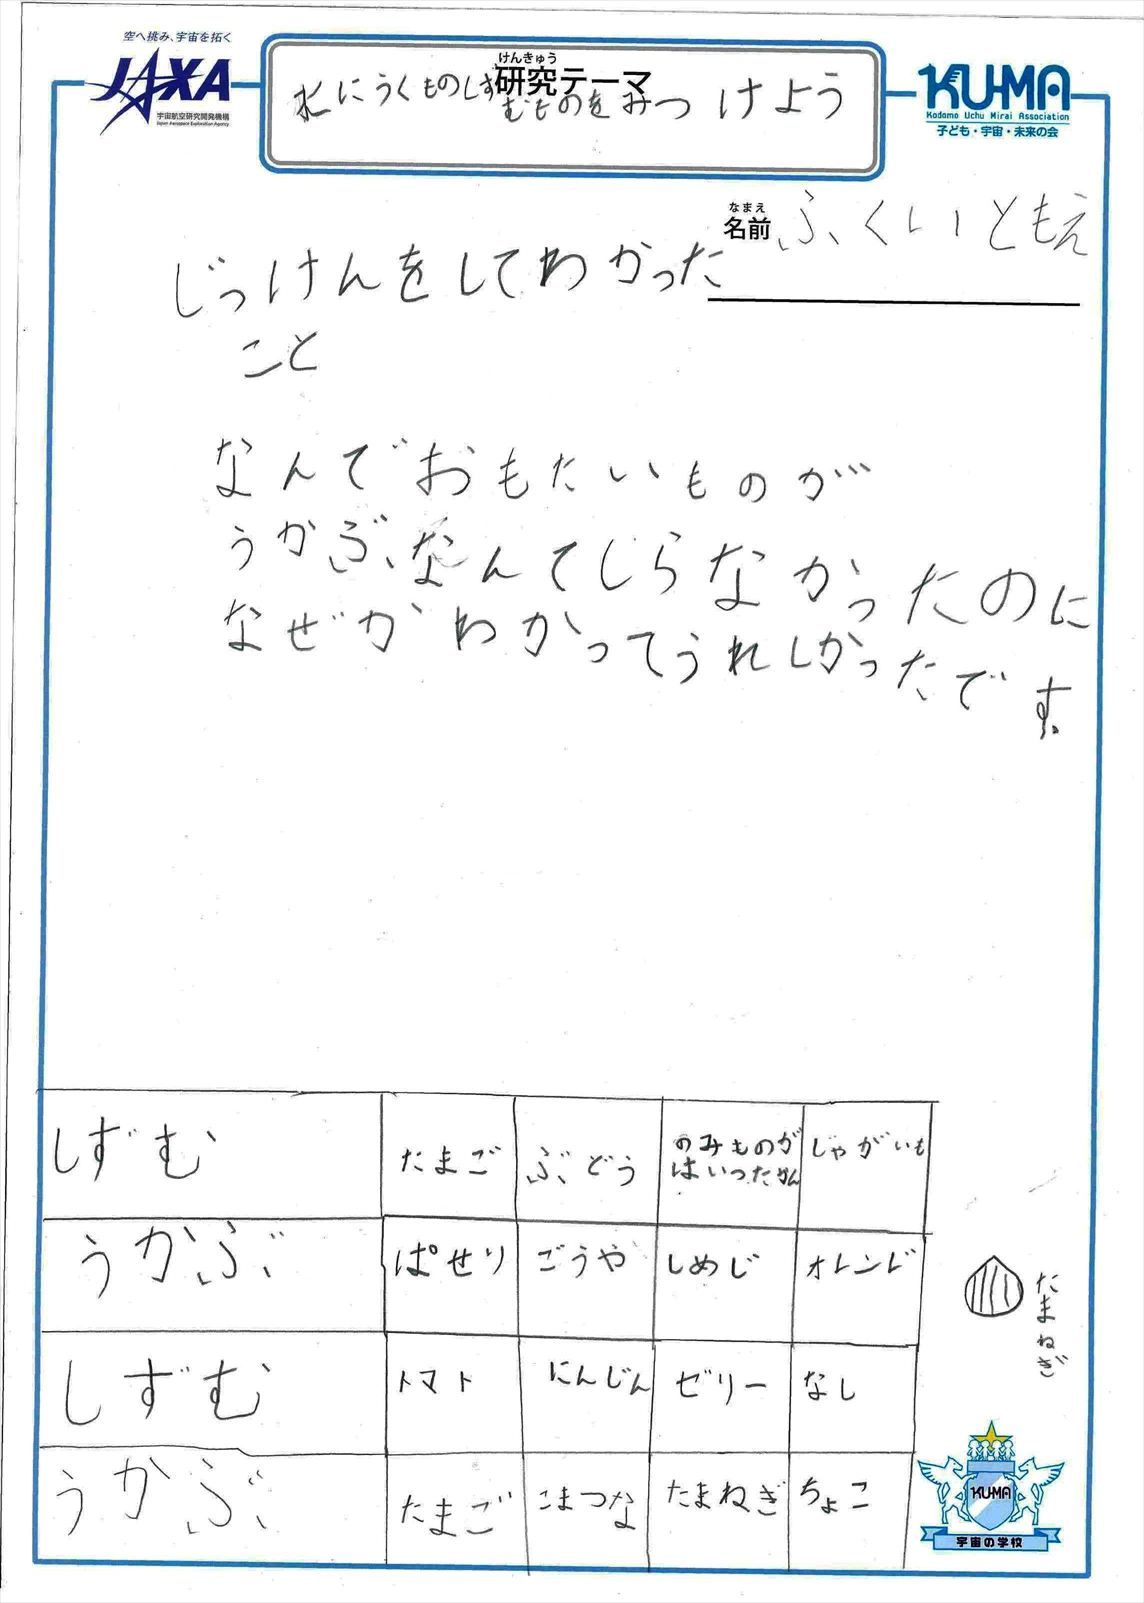 空へ挑み、宇宙を拓く
JAXA
宇宙航空研究開発機構
Japan Aerospace Exploration Agency
けんきゅう
研究テーマ
水にうくものしず
むものをみつけよう
KU-MA
Kodomo Uchu Mirai Association
子ども・宇宙・未来の会
なまえ
名前 ふくいともえ
じっけんをしてわかった
こと
なんでおもたいものが
うかぶなんてしらなかったのに
なぜかわかってうれしかったです。
しずむ たまご ぶどう のみものが はいったかん じゃがいも
うかぶ ぱせり ごうや しめじ オレンジ
しずむ トマト にんじん ゼリー なし
うかぶ たまご こまつな たまねぎ ちょこ
たまねぎ
KU-MA
宇宙の学校